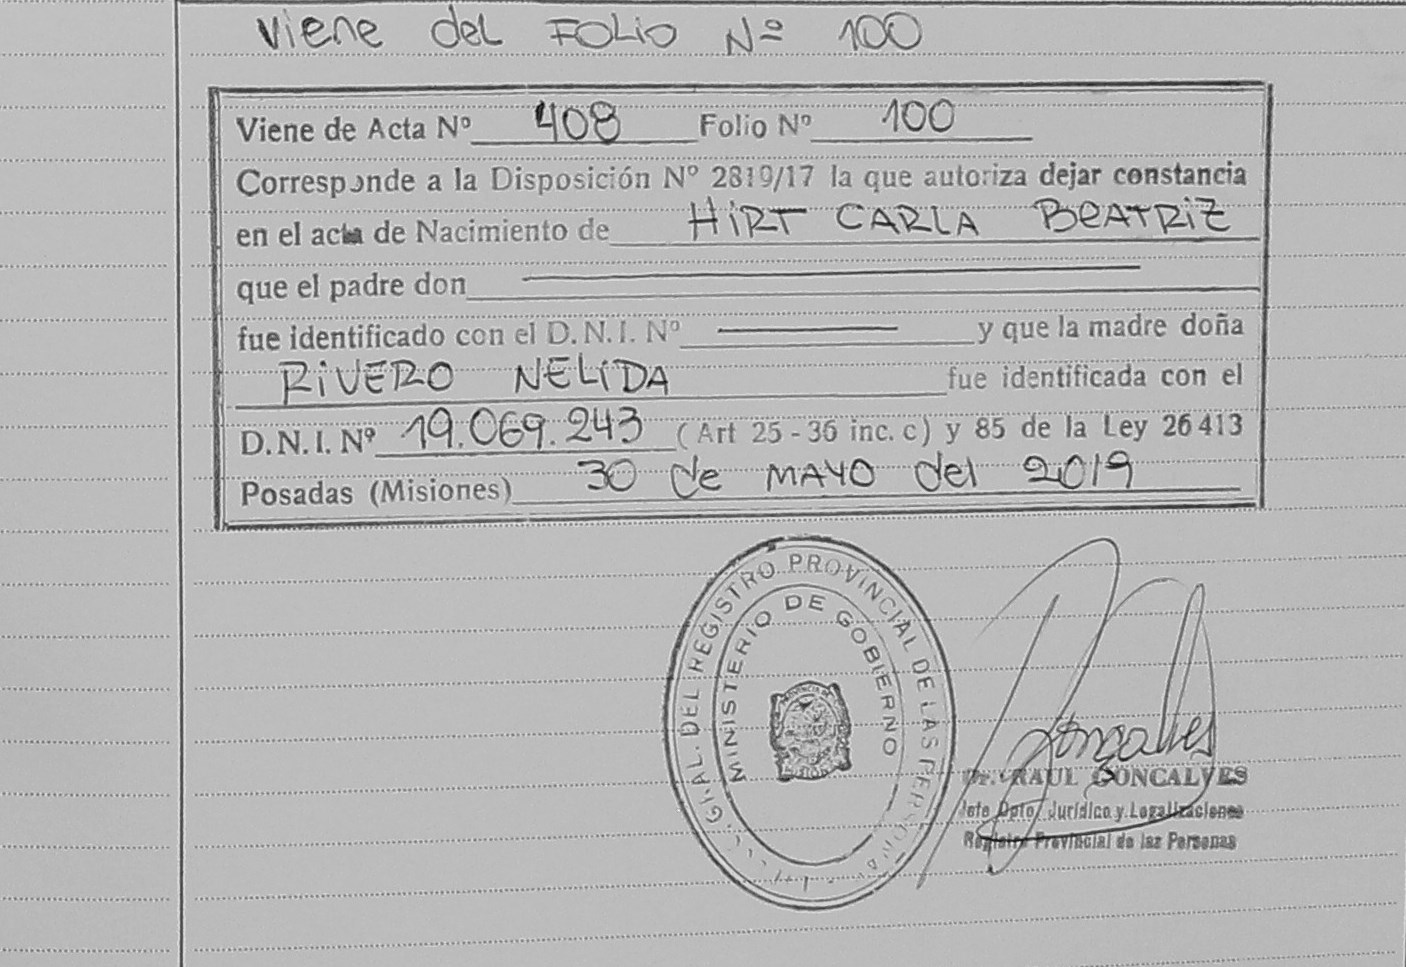 Viene del FOLIO Nº 100
Viene de Acta Nº 408 Folio Nº 100
Corresponde a la Disposición Nº 2819/17 la que autoriza dejar constancia
en el acta de Nacimiento de HIRT CARLA BEATRIZ
que el padre don
fue identificado con el D.N.I. Nº y que la madre doña
RIVERO NELIDA fue identificada con el
D.N.I. Nº 19.069.243 (Art 25 - 36 inc. c) y 85 de la Ley 26413
Posadas (Misiones) 30 de MAYO del 2019
GRAL. DEL REGISTRO PROVINCIAL DE LAS PERSONAS
MINISTERIO DE GOBIERNO
Gonçalves
Dr. RAUL GONCALVES
Jefe Dpto. Jurídico y Legalizaciones
Registro Provincial de las Personas